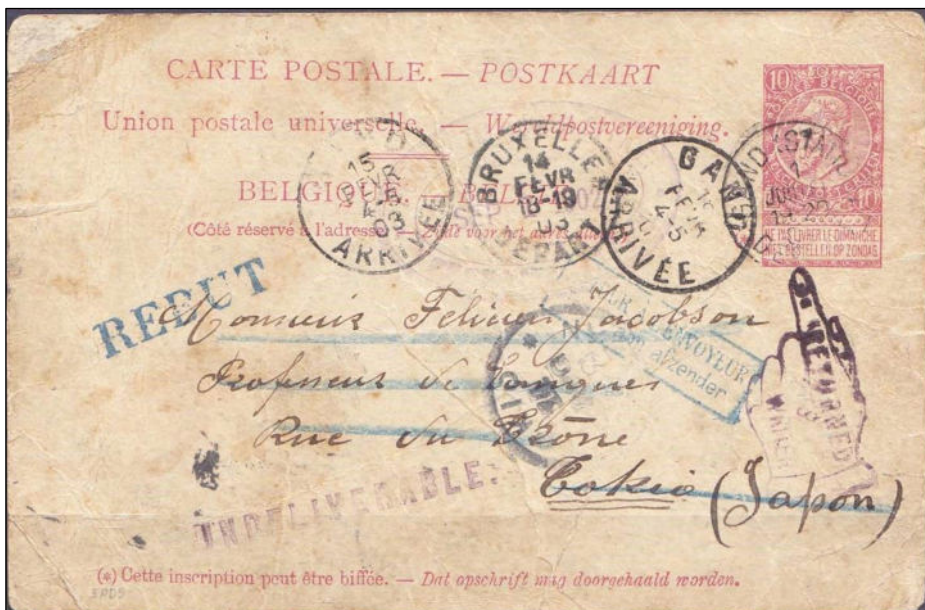 CARTE POSTALE. — POSTKAART
Union postale universelle. — Wereldpostvereeniging.
BELGIQUE.
(Côté réservé à l'adresse.) — Zijde voor het adres
10
10
NE PAS LIVRER LE DIMANCHE
NIET BESTELLEN OP ZONDAG
15
03
ARRIVÉE
BRUXELLES
14
FEVR
18-19
03
DEPART
GAND
FEVR
4-5
ARRIVÉE
REBUT
ENVOYEUR
afzender
RETURNED
WRITER
Monsieur Félicien Jacobson
Professeur de
Rue du Trône
Tokio (Japon)
UNDELIVERABLE.
(*) Cette inscription peut être biffée. — Dat opschrift mag doorgehaald worden.